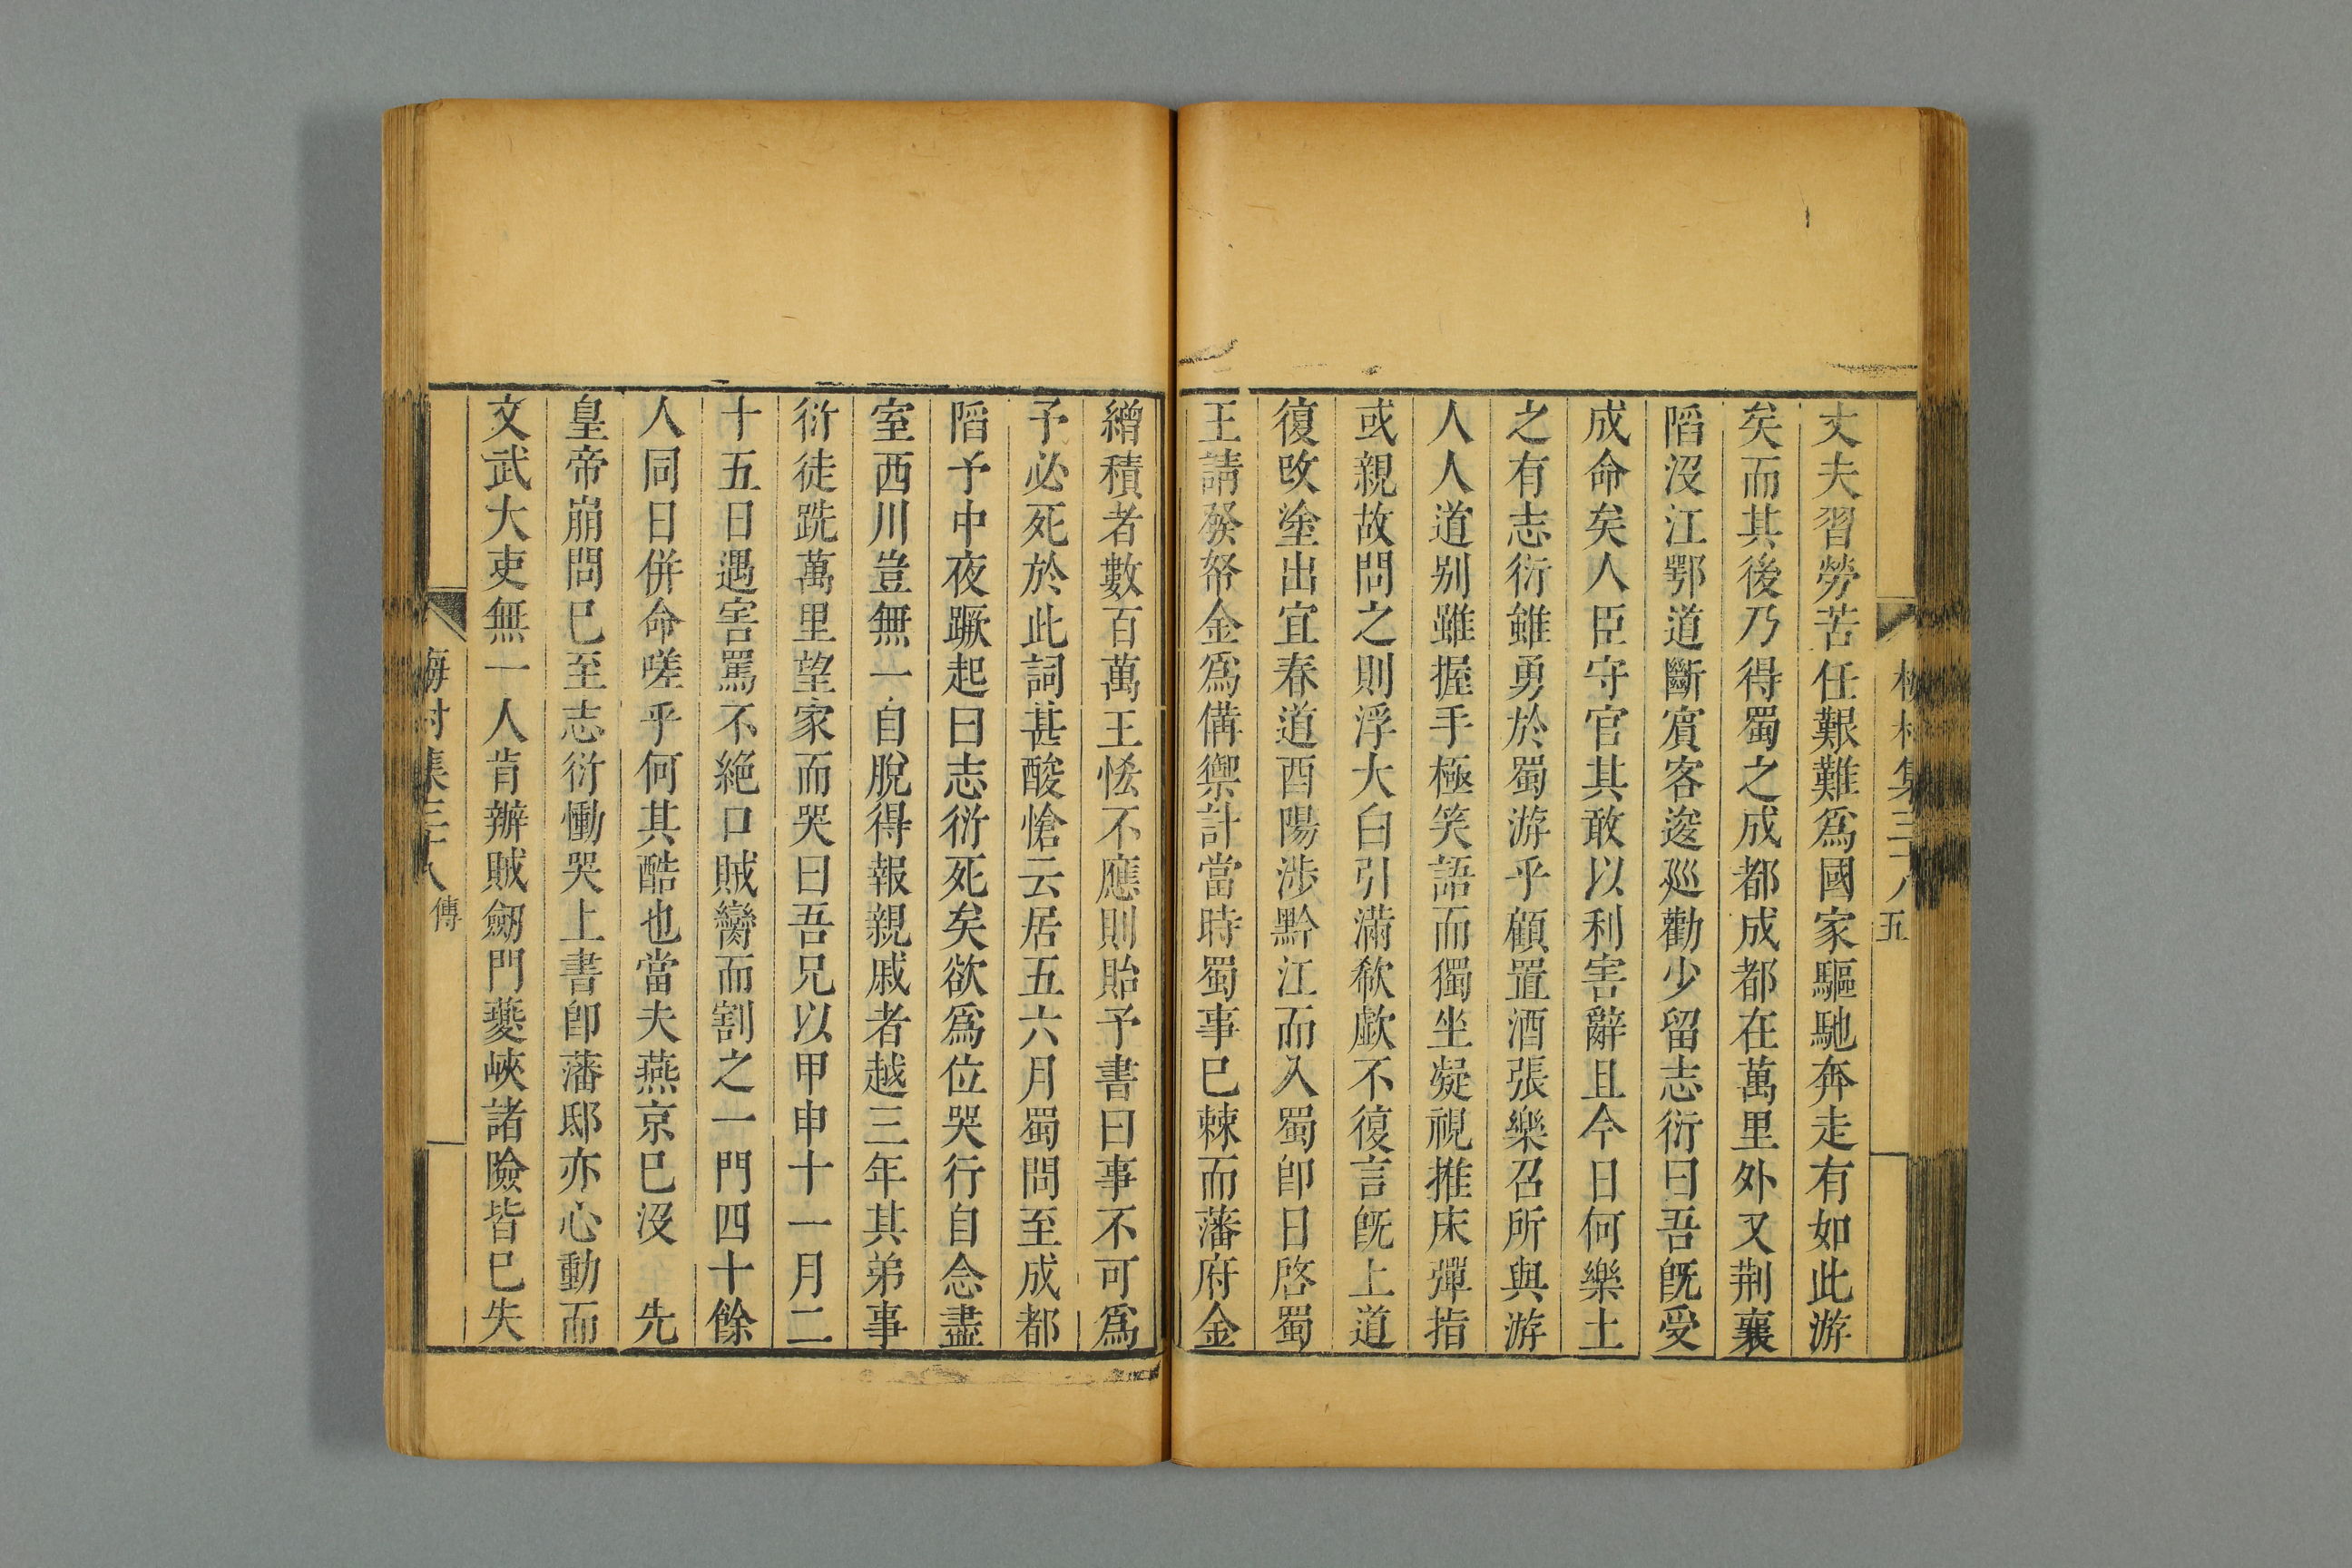 丈夫習勞苦任艱難爲國家驅馳奔走有如此游
矣而其後乃得蜀之成都成都在萬里外又荆襄
陷没江鄂道斷賔客逡廵勸少留志衍曰吾旣受
成命矣人臣守官其敢以利害辭且今日何樂土
之有志衍雖勇於蜀游乎顧置酒張樂召所與游
人人道别雖握手極笑語而獨坐凝視推床彈指
或親故問之則浮大白引滿欷歔不復言旣上道
復改塗出宜春道酉陽涉黔江而入蜀卽日啓蜀
王請發帑金爲備禦計當時蜀事已棘而藩府金
繒積者數百萬王恡不應則貽予書曰事不可爲
予必死於此詞甚酸愴云居五六月蜀問至成都
陷予中夜蹶起曰志衍死矣欲爲位哭行自念盡
室西川豈無一自脫得報親戚者越三年其弟事
衍徒跣萬里望家而哭曰吾兄以甲申十一月二
十五日遇害罵不絶口賊臠而割之一門四十餘
人同日併命嗟乎何其酷也當夫燕京已没 先
皇帝崩問已至志衍慟哭上書卽藩邸亦心動而
文武大吏無一人肯辦賊劒門夔峽諸險皆已失
梅村集三十八 傳
五